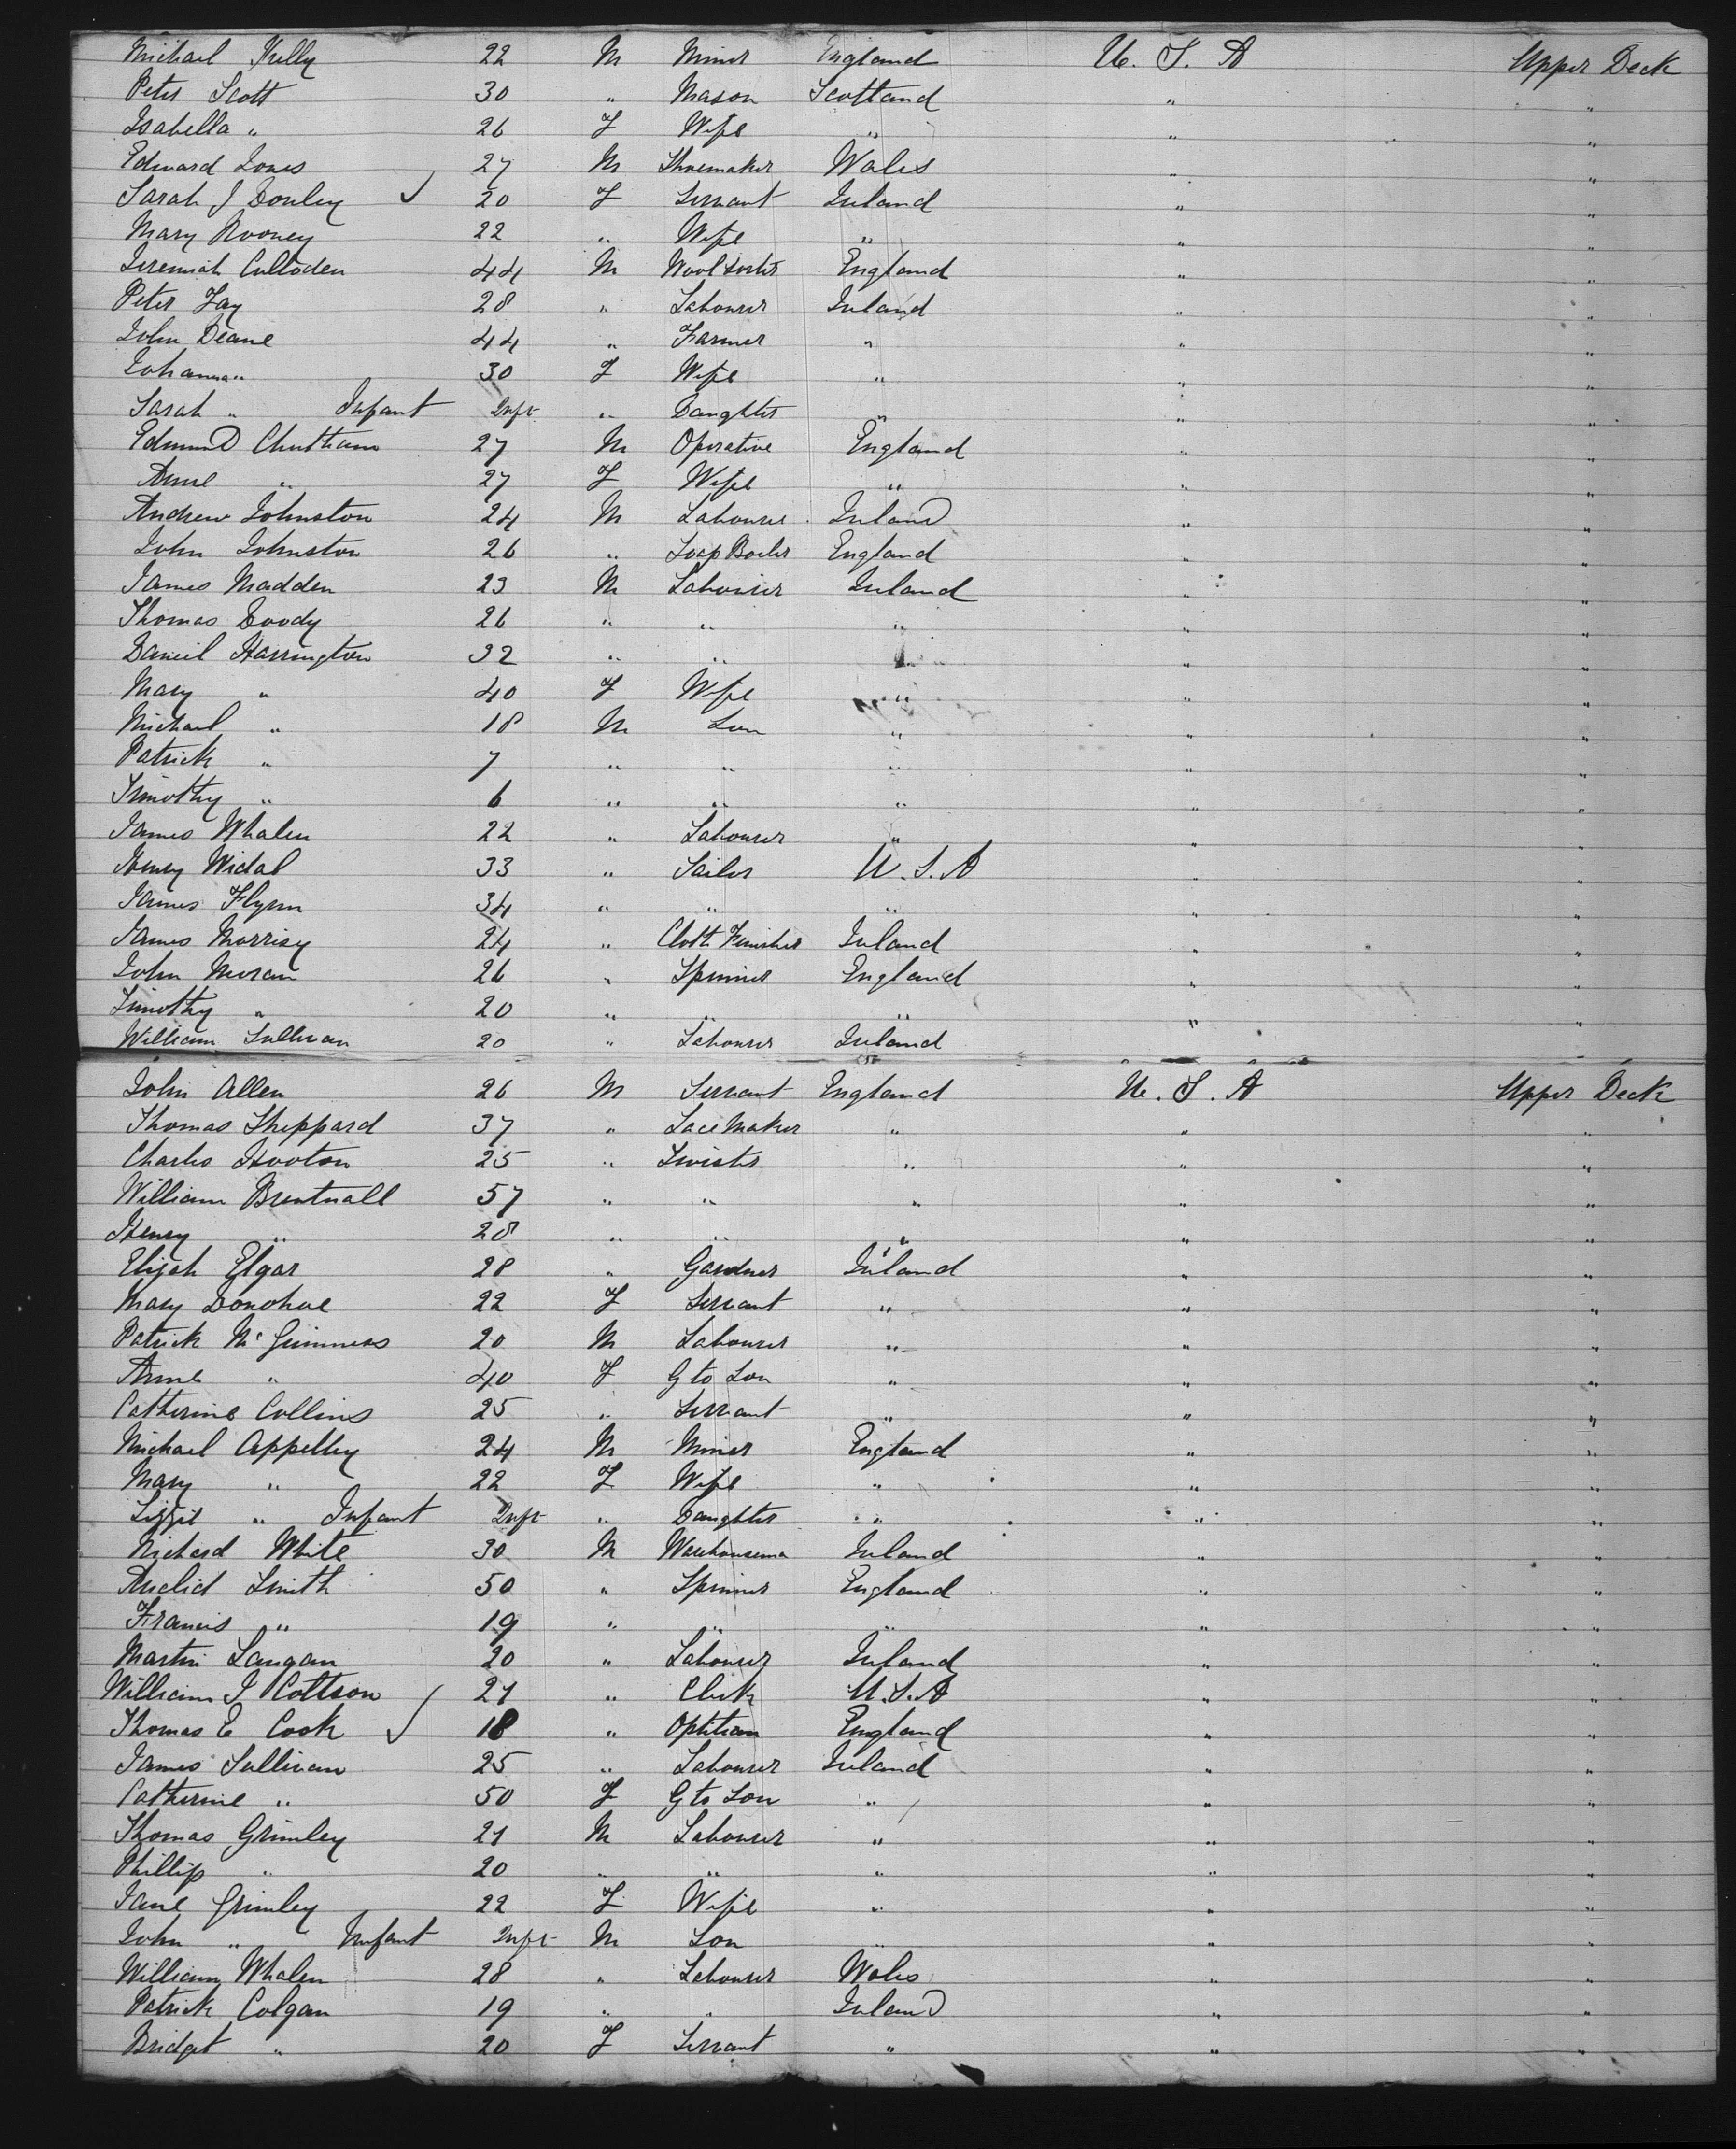 Michael Kelly 22 M Miner England U. S. A Upper Deck
Peter Scott 30 " Mason Scotland " "
Isabella " 26 F Wife " " "
Edward Jones 27 M Shoemaker Wales " "
Sarah J Donley ✓ 20 F Servant Ireland " "
Mary Rooney 22 " Wife " " "
Jeremiah Culloden 44 M Wool Sorter England " "
Peter Fay 28 " Labourer Ireland " "
John Deane 44 " Farmer " " "
Johanna " 30 F Wife " " "
Sarah " Infant Inft " Daughter " " "
Edmund Cheetham 27 M Operative England " "
Anne " 27 F Wife " " "
Andrew Johnston 24 M Labourer Ireland " "
John Johnston 26 " Soap Boiler England " "
James Madden 23 M Labourer Ireland " "
Thomas Doody 26 " " " " "
Daniel Harrington 32 " " " " "
Mary " 40 F Wife " " "
Michael " 18 M Son " " "
Patrick " 7 " " " " "
Timothy " 6 " " " " "
James Whalen 22 " Labourer " " "
Henry Widal 33 " Sailor U. S. A " "
James Flynn 34 " " " " "
James Morrisy 24 " Cloth Finisher Ireland " "
John Moran 26 " Spinner England " "
Timothy " 20 " " " " "
William Sullivan 20 " Labourer Ireland
John Allen 26 M Servant England U. S. A Upper Deck
Thomas Sheppard 37 " Lace Maker " " "
Charles Hooton 25 " Twister " " "
William Brentnall 57 " " " " "
Henry " 28 " " " " "
Elijah Elgar 28 " Gardner Ireland " "
Mary Donohoe 22 F Servant " " "
Patrick McGuinness 20 M Labourer " " "
Anne " 40 F G to Son " " "
Catherine Collins 25 " Servant " " "
Michael Appelby 24 M Miner England " "
Mary " 22 F Wife " " "
Lizzie " Infant Inft " Daughter " " "
Richard White 30 M Warehousema Ireland " "
Smith 50 " Spinner England " "
Francis " 19 " " " " "
Martin Langan 20 " Labourer Ireland " "
William J Cottson ✓ 21 " Clerk U. S. A " "
Thomas E Cook ✓ 18 " Optitian England " "
James Sullivan 25 " Labourer Ireland " "
Catherine " 50 F G to Son " " "
Thomas Grimley 21 M Labourer " " "
Phillip " 20 " " " " "
Jane Grimley 22 F Wife " " "
John " Infant Inft M Son " " "
William Whalen 28 " Labourer Wales " "
Patrick Colgan 19 " " Ireland " "
Bridget " 20 F Servant " " "